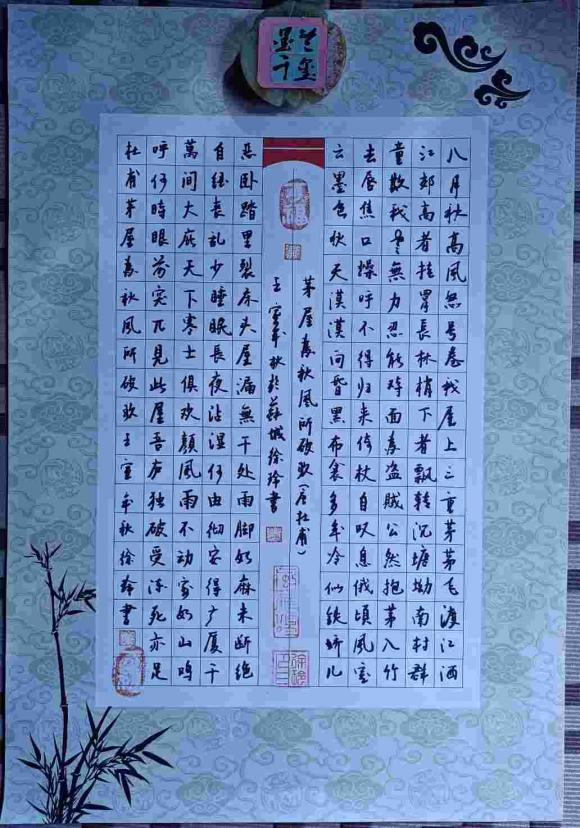 八月秋高風怒号卷我屋上三重茅茅飞渡江洒
江郊高者挂罥長林梢下者飄转沉塘坳南村群
童欺我老無力忍能对面為盗賊公然抱茅入竹
去唇焦口燥呼不得归来倚杖自叹息俄頃風定
云墨色秋天漠漠向昏黑布衾多年冷似铁娇儿
茅屋為秋風所破歌(唐杜甫)
壬寅年秋於蘇城徐玲書
恶卧踏里裂床头屋漏無干处雨脚如麻未断绝
自经丧乱少睡眠長夜沾湿何由彻安得广厦千
萬间大庇天下寒士俱欢顏風雨不动安如山嗚
呼何時眼前突兀見此屋吾庐独破受冻死亦足
杜甫茅屋為秋風所破歌壬寅年秋徐玲書